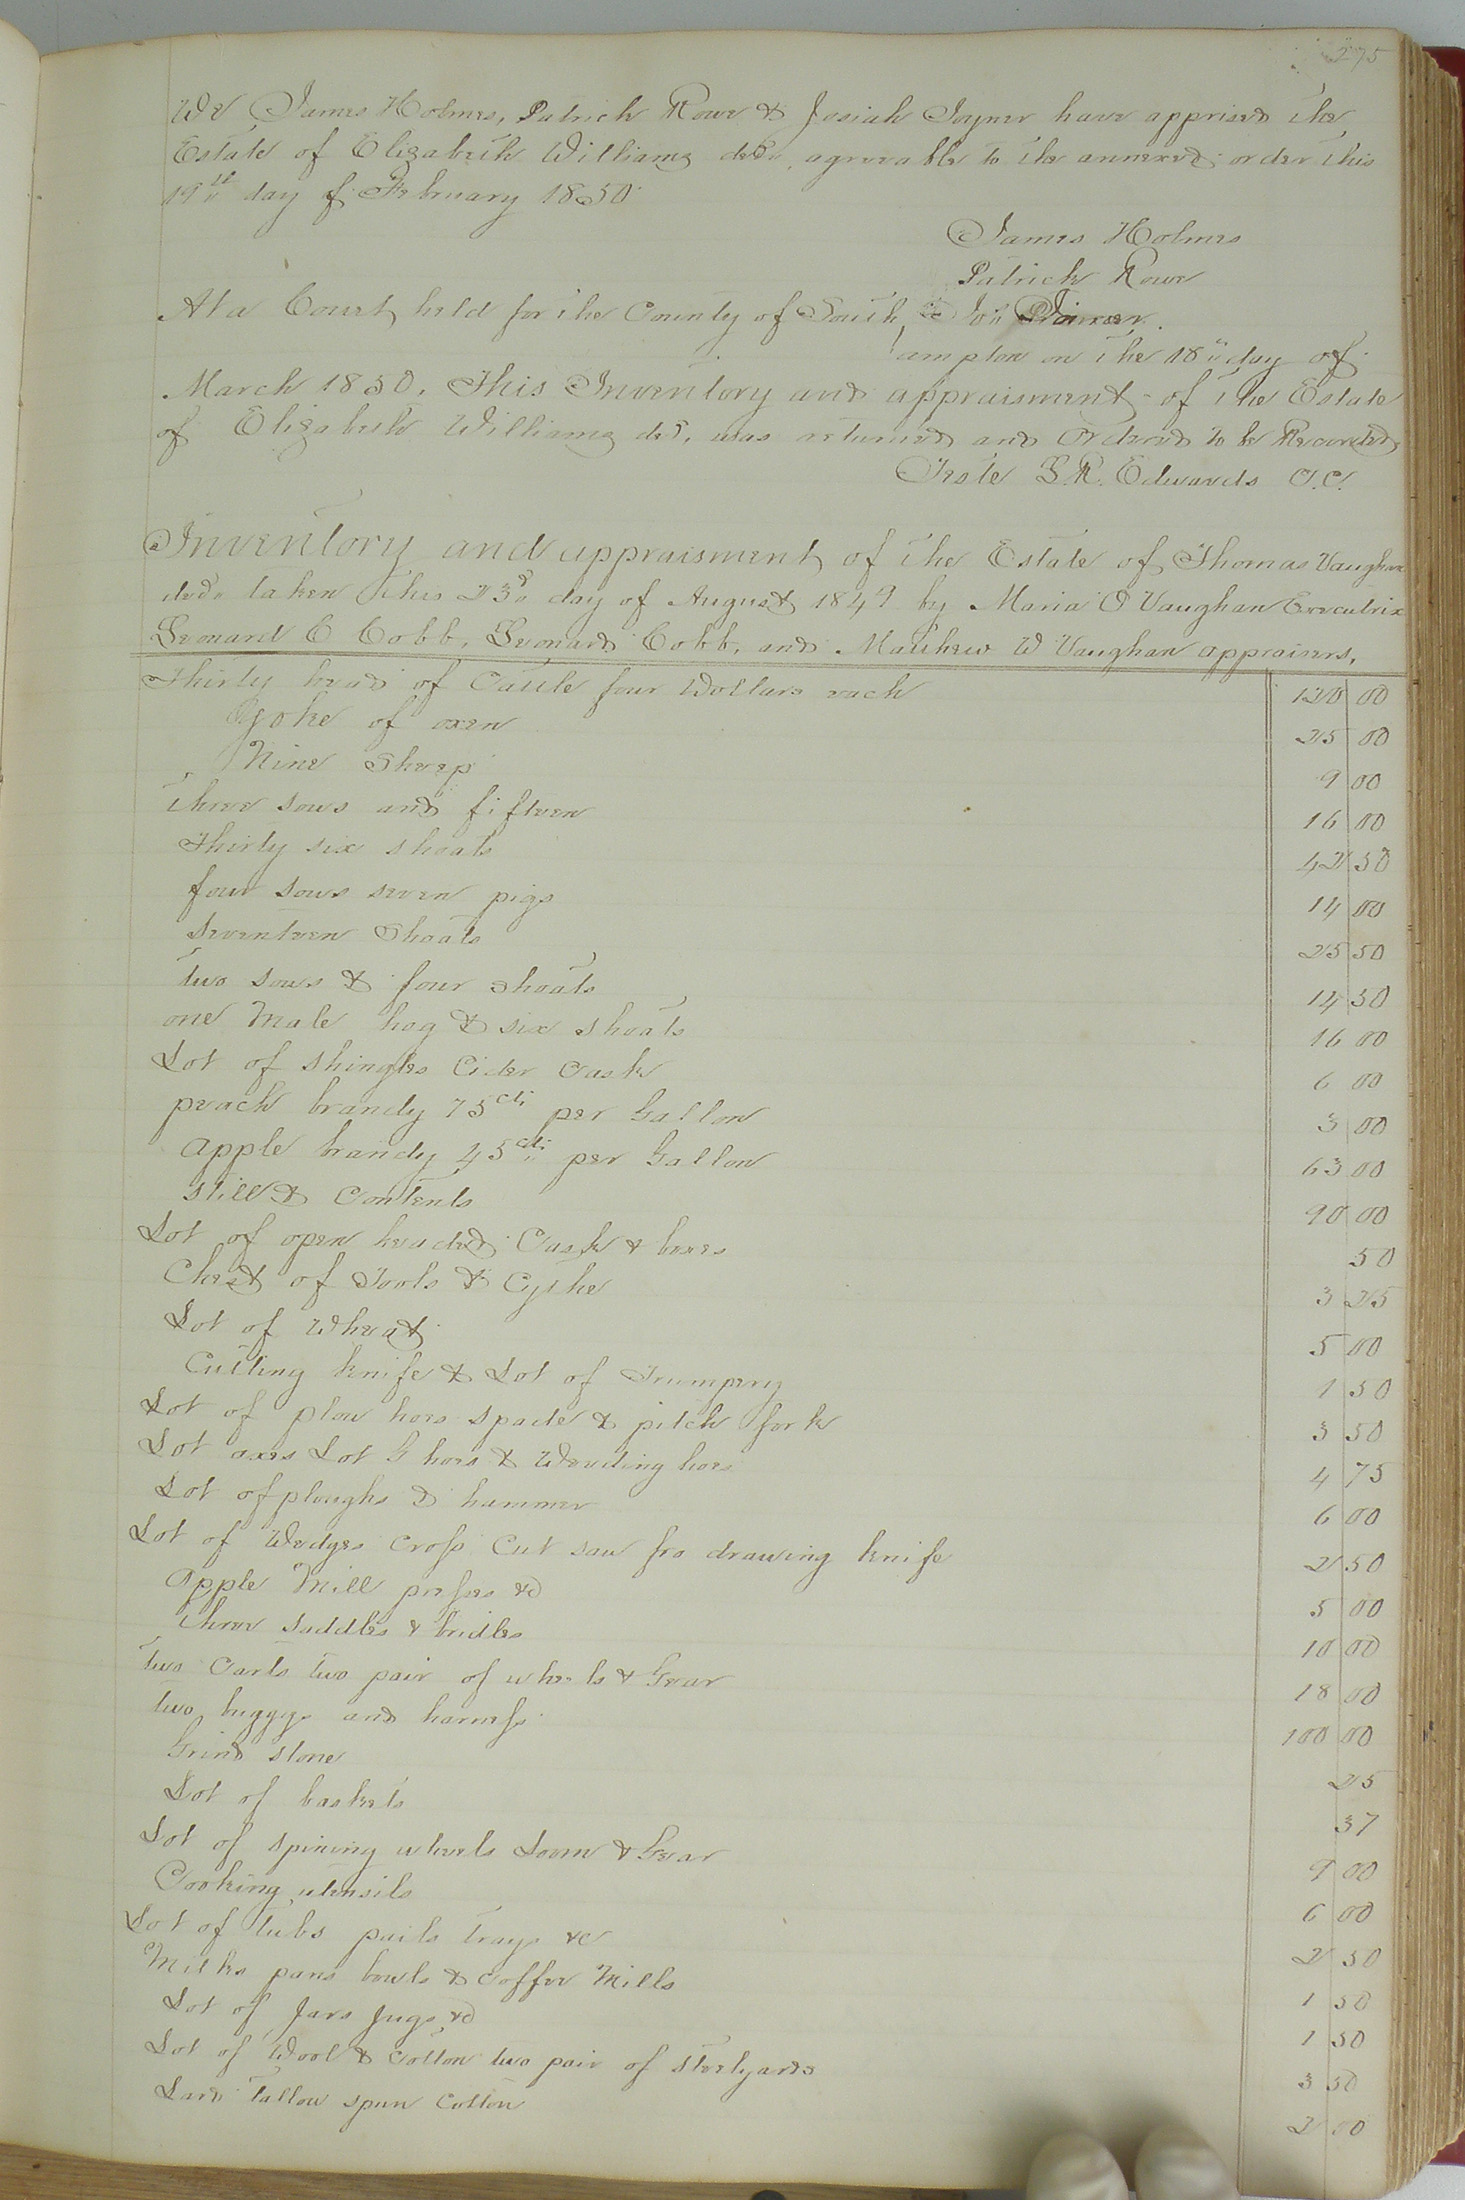 275
We James Holmes, Patrick Rowe & Josiah Joyner have apprised the
Estate of Elizabeth Williams decd. agreeable to the annexed order this
19th day of February 1850
James Holmes
Patrick Rowe
At a Court held for the County of South Jos Joiner
ampton on the 18th day of
March 1850. This Inventory and appraisment of the Estate
of Elizabeth Williams decd. was returned and Ordered to be Recorded
Teste L.R. Edwards C.C.
Inventory and appraisment of the Estate of Thomas Vaughan
decd. taken this 23d day of August 1849 by Maria O Vaughan Executrix
Leonard C Cobb, Leonard Cobb, and Mathew W Vaughan appraisers,
Thirty head of Cattle four Dollars each 120 00
Yoke of oxen 25 00
Nine Sheep 9 00
three sows and fifteen 16 00
Thirty six shoats 42 50
four sows seven pigs 14 00
seventeen Shoats 25 50
two sows & four shoats 14 50
one Male hog & six shoats 16 00
Lot of shingles Cider Cask 6 00
peach brandy 75cts per Gallon 3 00
apple brandy 45cts per Gallon 63 00
still & Contents 90 00
Lot of open headed Cask & boxes 50
Chest of Tools & Cythe 3 25
Lot of Wheat 5 00
Cutting knife & Lot of Trumpery 1 50
Lot of plow hoes spade & pitch fork 3 50
Lot axes Lot G hoes & Weeding hoes 4 75
Lot of ploughs & hammer 6 00
Lot of Wedges Cross Cut saw fro drawing knife 2 50
Apple Mill presses &c 5 00
three saddles & bridles 10 00
two Carts two pair of wheels & Gear 18 00
two buggys and harness 100 00
Grind stone 25
Lot of baskets 37
Lot of spining wheels Loom & Gear 9 00
Cooking utensils 6 00
Lot of tubs pails trays &c 2 50
Milks pans bowls & Coffee Mills 1 50
Lot of Jars Jugs &c 1 50
Lot of Wool & Cotton two pair of steelyards 3 50
Lard Tallow spun Cotton 2 00